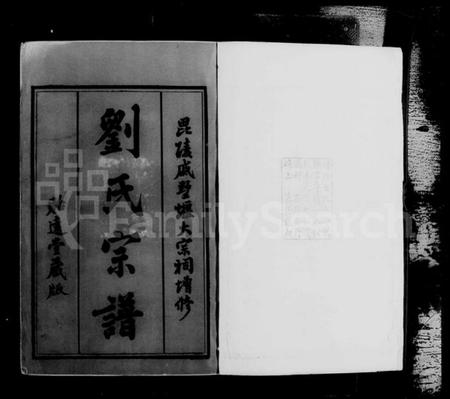 毘陵戚墅堰大宗祠增修
劉氏宗譜
道堂藏版
FamilySearch